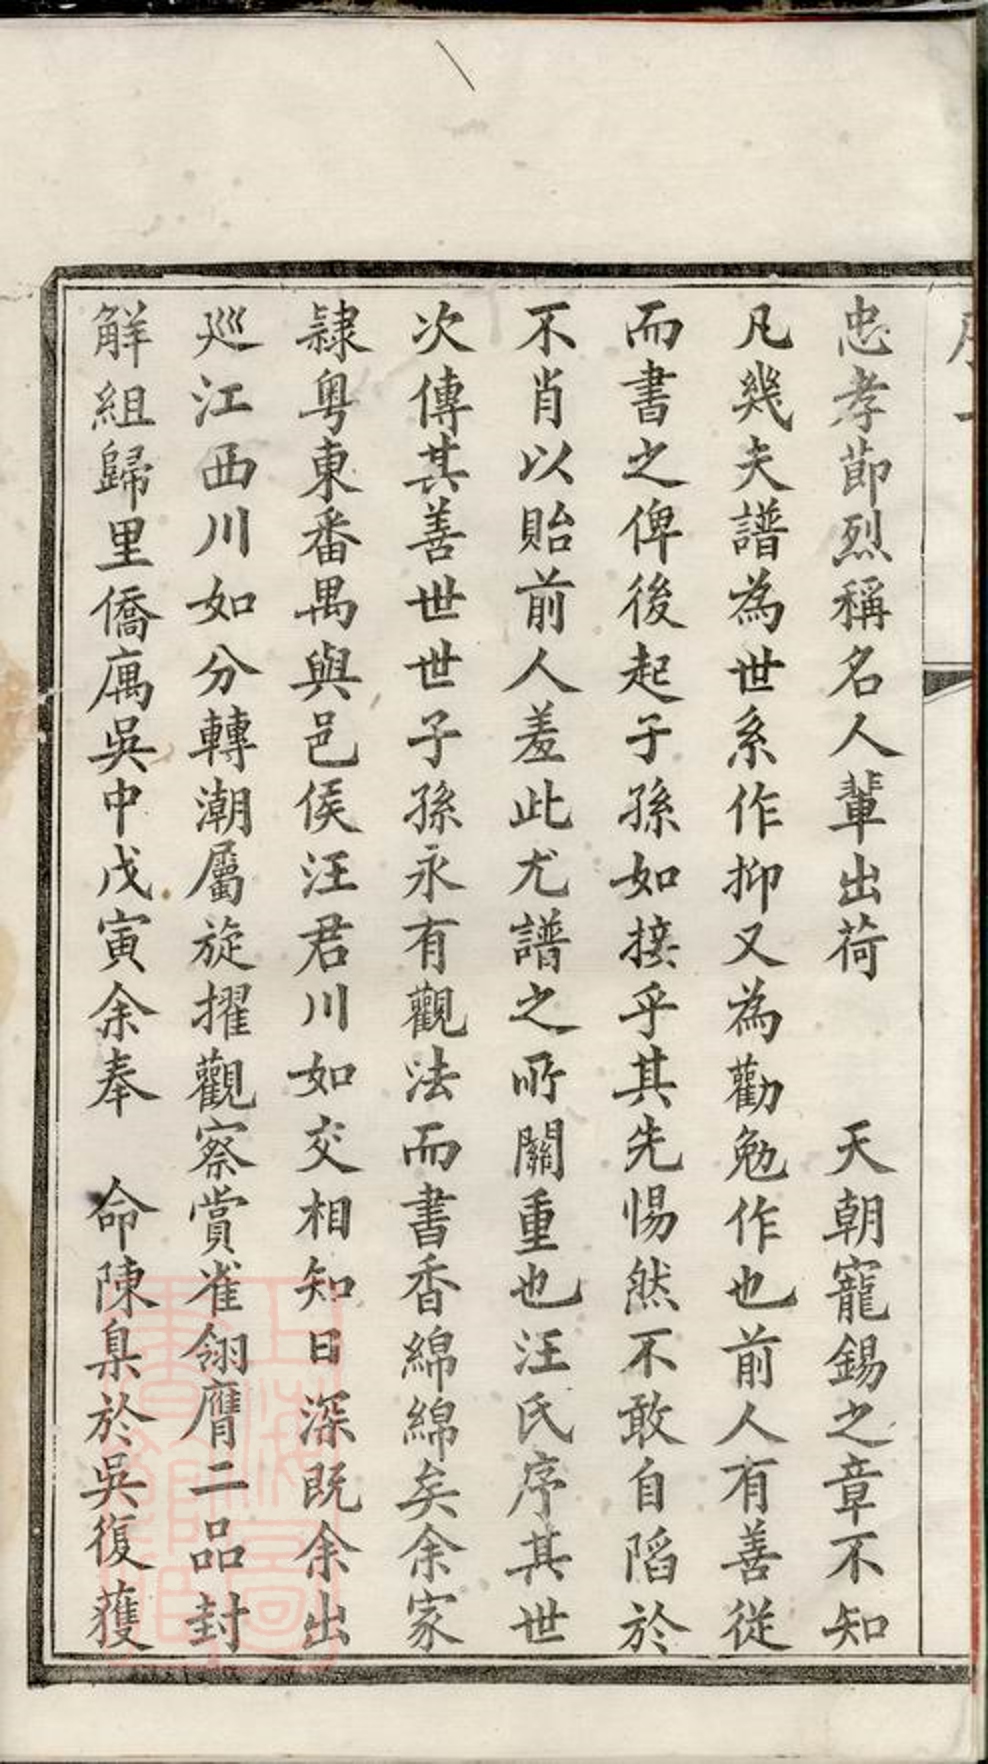 忠孝節烈稱名人輩出荷　天朝寵錫之章不知
凡幾夫譜為世系作抑又為勸勉作也前人有善從
而書之俾後起子孫如接乎其先惕然不敢自陷於
不肖以貽前人羞此尤譜之所關重也汪氏序其世
次傳其善世世子孫永有觀法而書香綿綿矣余家
隷粵東番禺與邑侯汪君川如交相知日深既余出
巡江西川如分轉潮屬旋擢觀察賞雀翎膺二品封
解組歸里僑寓吳中戊寅余奉　命陳臬於吳復獲
上海圖書館藏